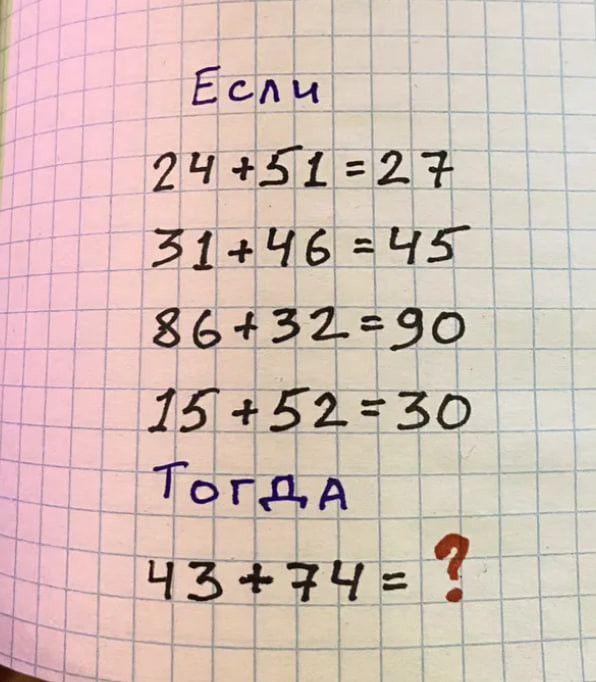 Если
24+51=27
31+46=45
86+32=90
15+52=30
Тогда
43+74=?